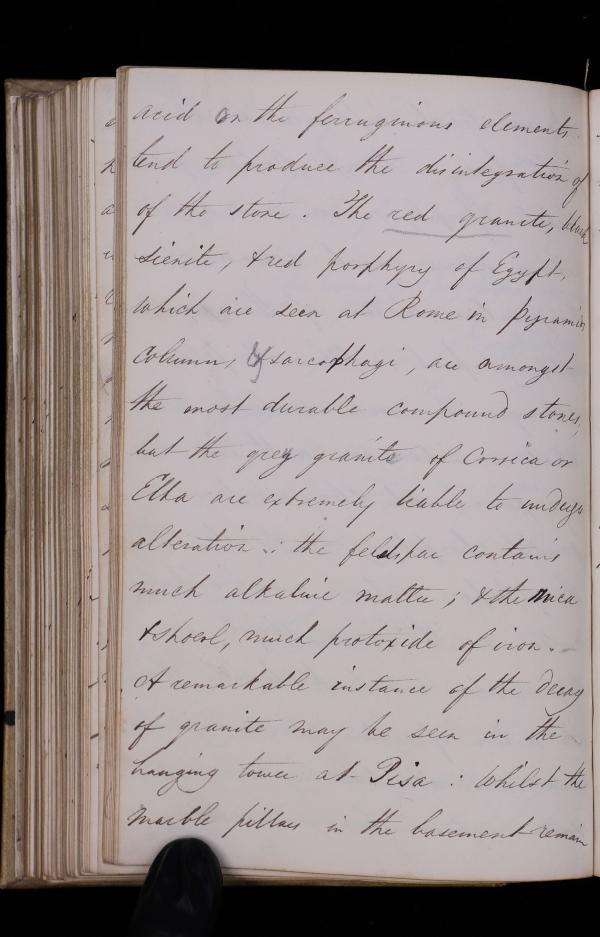 acid on the ferruginous elements
tend to produce the disintegration of
of the stone. The red granite, black
sienite, & red porphyry of Egypt,
which are seen at Rome in pyramids,
column, & sarcophagi, are amongst
the most durable compound stones,
but the grey granite of Corsica or
Elba are extremely liable to undergo
alteration : the feldspar contains
much alkaline matter ; & the mica
& shoerl, much protoxide of iron. -
A remarkable instance of the decay
of granite may be seen in the
hanging tower at Pisa : Whilst the
marble pillars in the basement remain